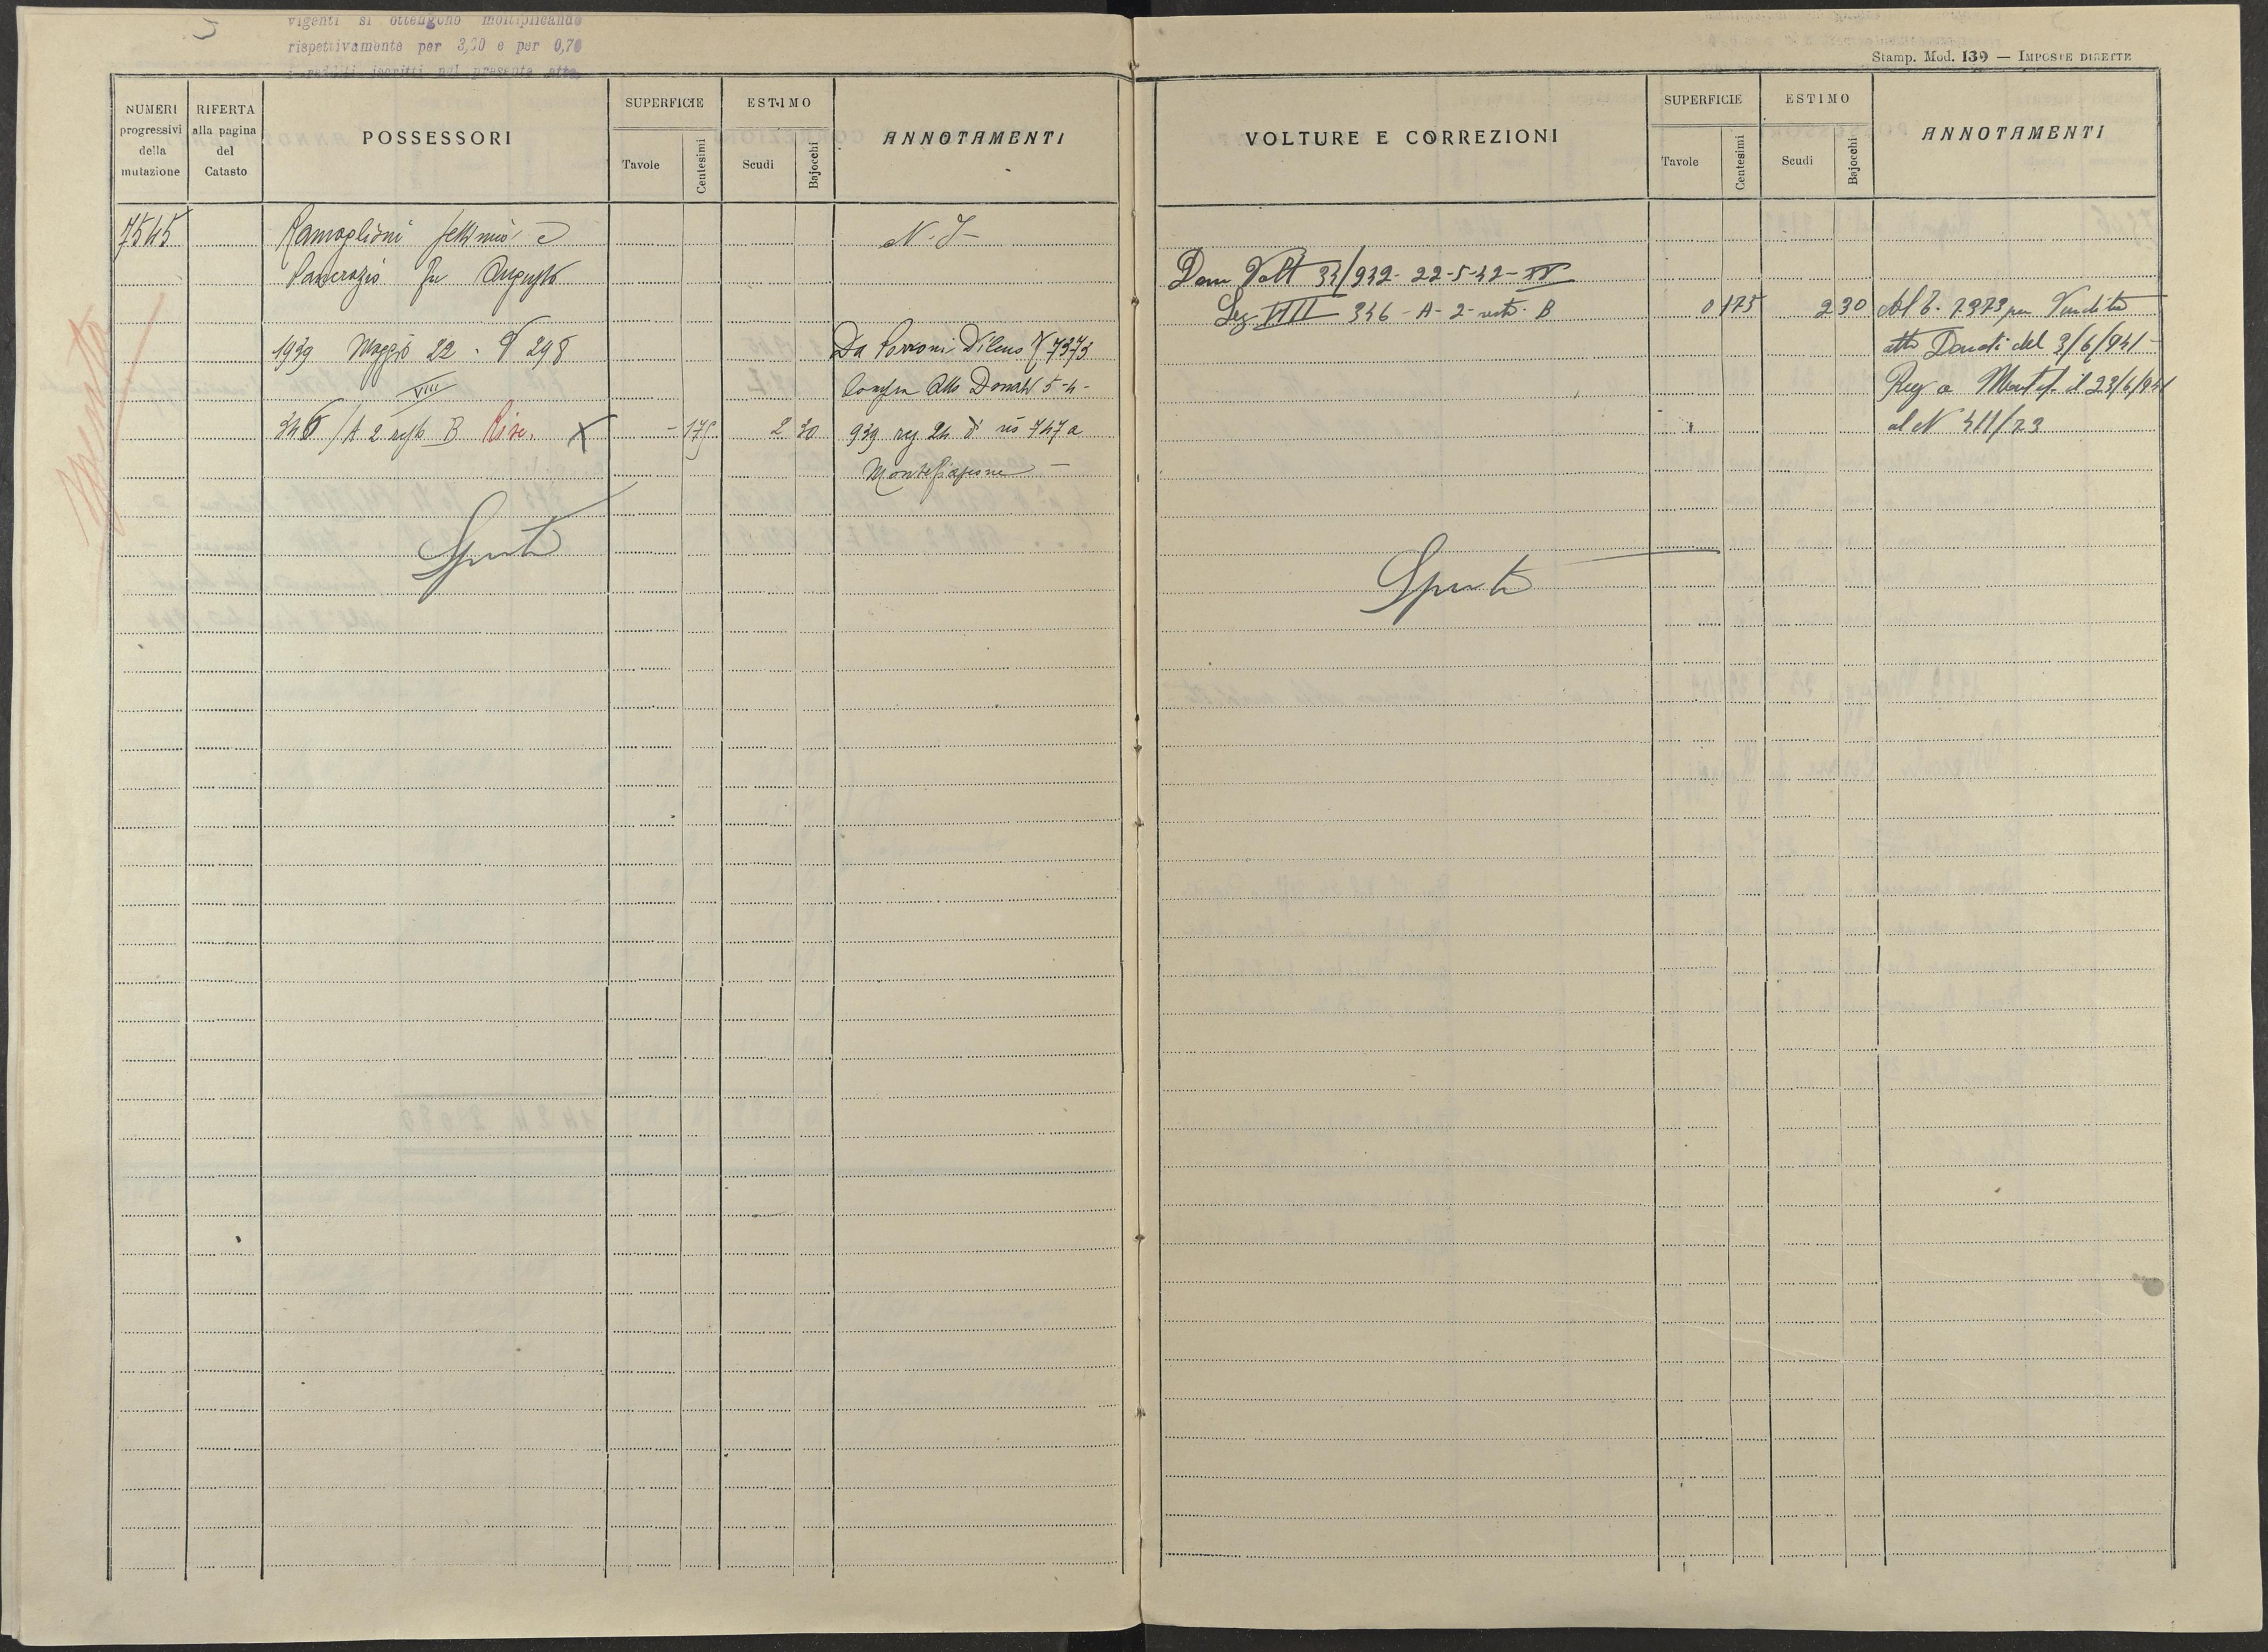 viganti si ottengono moltiplicando
rispettivamente per 3,00 e per 0,70
i redditi iscritti nel presente atto.
NUMERI progressivi della mutazione
RIFERTA alla pagina del Catasto
POSSESSORI
SUPERFICIE
Tavole
Centesimi
ESTIMO
Scudi
Bajocchi
ANNOTAMENTI
7545
Ramoglioni
N. I
Pancrazio fu Augusto
1939 Maggio 22 . N 298
Da Porroni Dileno N 7373
VIII
Compra Atto Donati 5-4-
346 / A 2 resto B Rise. X
- 175
2 30
939 reg 24 d° nº 747 a
Montefiascone
Spento
Spento
Stamp. Mod. 139 — IMPOSTE DIRETTE
VOLTURE E CORREZIONI
SUPERFICIE
Tavole
Centesimi
ESTIMO
Scudi
Bajocchi
ANNOTAMENTI
Dom Volt 34/942- 22-5-42-XX
Sez VIII 346 - A - 2 - resto - B
0 175
2 30
Al C. 7373 per Vendita
atto Donati del 3/6/941
Reg a Montef. il 23/6/941
al N 411/73
Spento